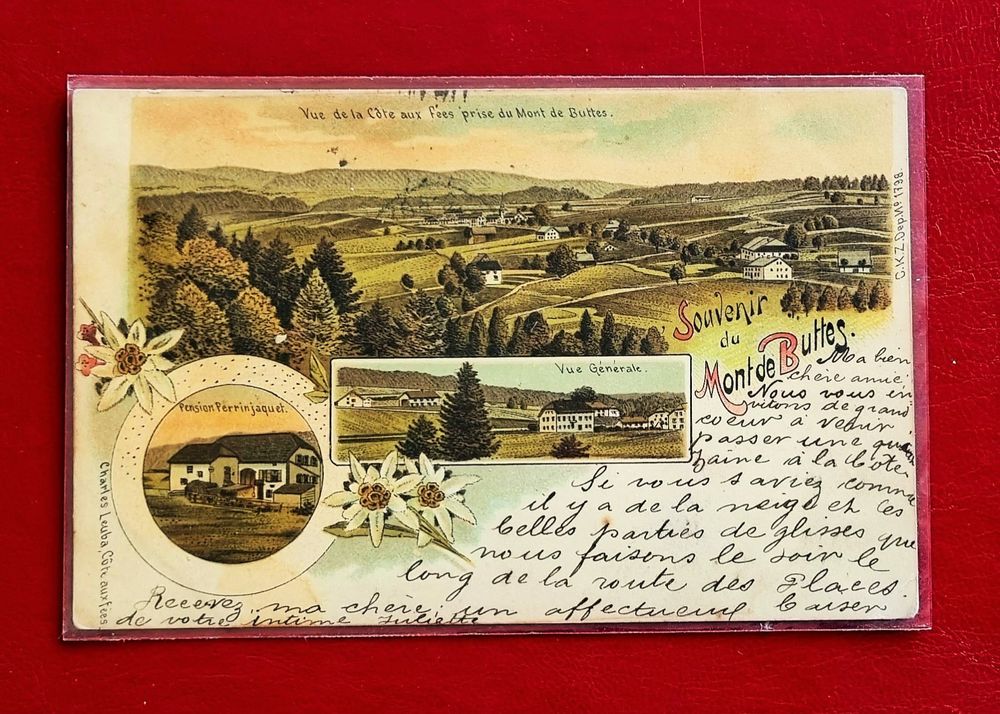 Vue de la Côte aux Fées prise du Mont de Buttes.
C.K.Z. Dep. No 1798.
Souvenir
du
Mont de Buttes.
Vue Générale.
Pension Perrinjaquet.
Charles Leuba, Côte aux Fées.
Ma bien
chère amie
Nous vous in
vitons de grand
coeur à venir
passer une quin
zaine à la Côte
Si vous saviez comme
il y a de la neige et les
belles parties de glisses que
nous faisons le soir le
long de la route des Places.
Recevez, ma chère, un affectueux baiser
de votre intime Juliette